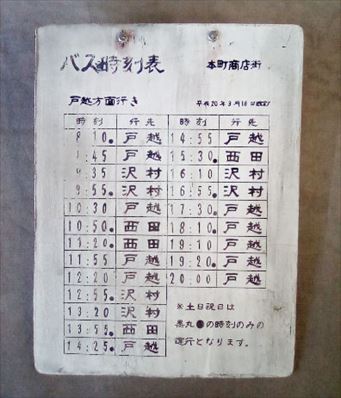 バス時刻表 本町商店街
戸越方面行き 平成20年3月18日改訂
時刻 行先 時刻 行先
8:10● 戸越 14:55 戸越
:45 戸越 15:30● 西田
9:35 沢村 16:10 沢村
9:55● 沢村 16:55● 沢村
10:30 戸越 17:30● 戸越
10:50● 西田 18:10 戸越
11:20● 西田 19:10 戸越
11:55 戸越 19:20● 戸越
12:20 戸越 20:00 戸越
12:55● 沢村
13:20 沢村
13:55● 西田
14:25● 戸越
※土日祝日は
黒丸●の時刻のみの
運行となります。